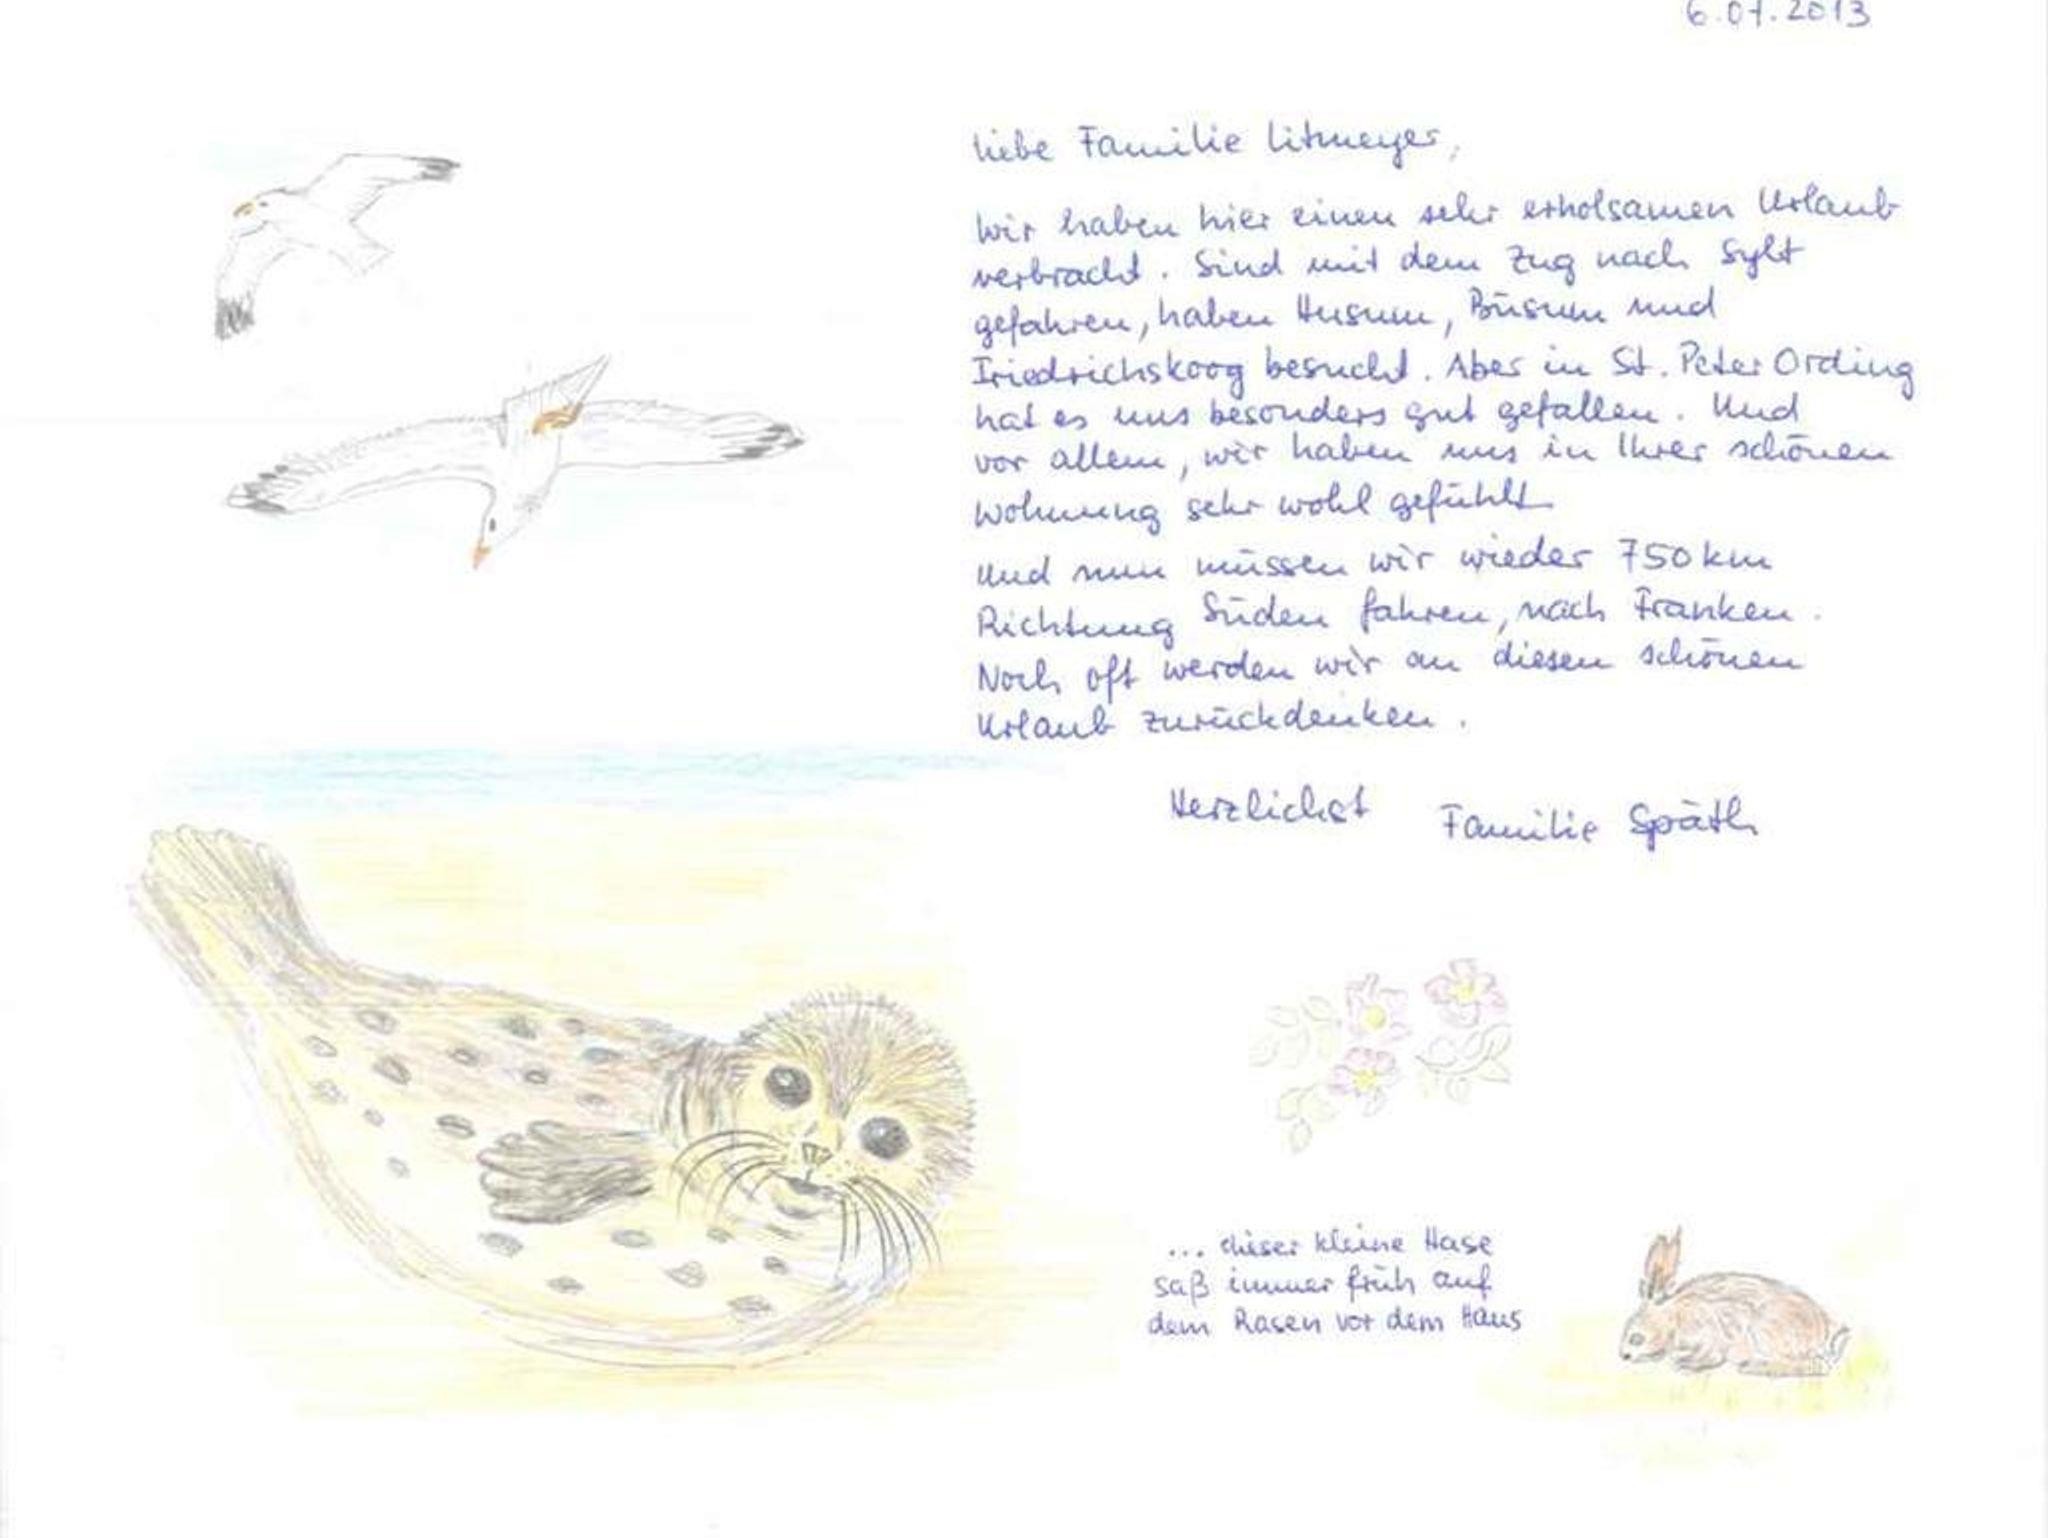 6.07.2013
Liebe Familie Litmeyer,
Wir haben hier einen sehr erholsamen Urlaub
verbracht. Sind mit dem Zug nach Sylt
gefahren, haben Husum, Büsum und
Friedrichskoog besucht. Aber in St. Peter Ording
hat es uns besonders gut gefallen. Und
vor allem, wir haben uns in Ihrer schönen
Wohnung sehr wohl gefühlt
Und nun müssen wir wieder 750 km
Richtung Süden fahren, nach Franken.
Noch oft werden wir an diesen schönen
Urlaub zurückdenken.
Herzlichst Familie Späth
... dieser kleine Hase
saß immer früh auf
dem Rasen vor dem Haus